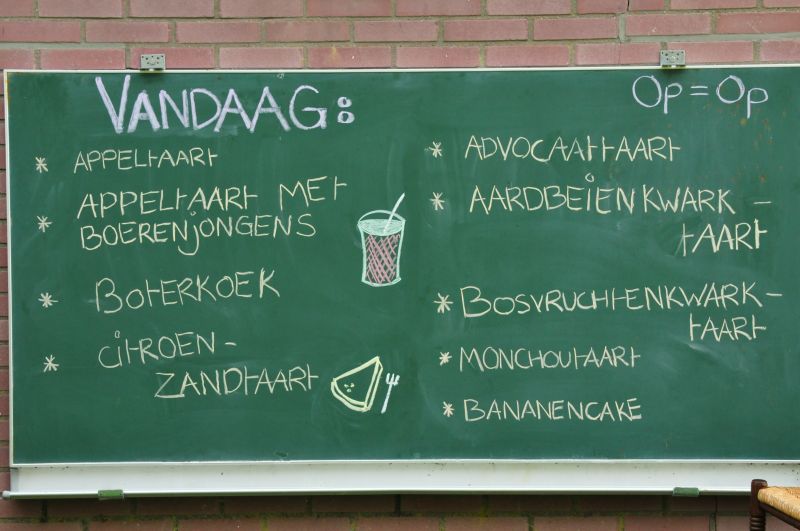 VANDAAG:
* APPELTAART
* APPELTAART MET
BOERENJONGENS
* BOTERKOEK
* CITROEN-
ZANDTAART
Op = Op
* ADVOCAATTAART
* AARDBEIENKWARK-
TAART
* BOSVRUCHTENKWARK-
TAART
* MONCHOUTAART
* BANANENCAKE